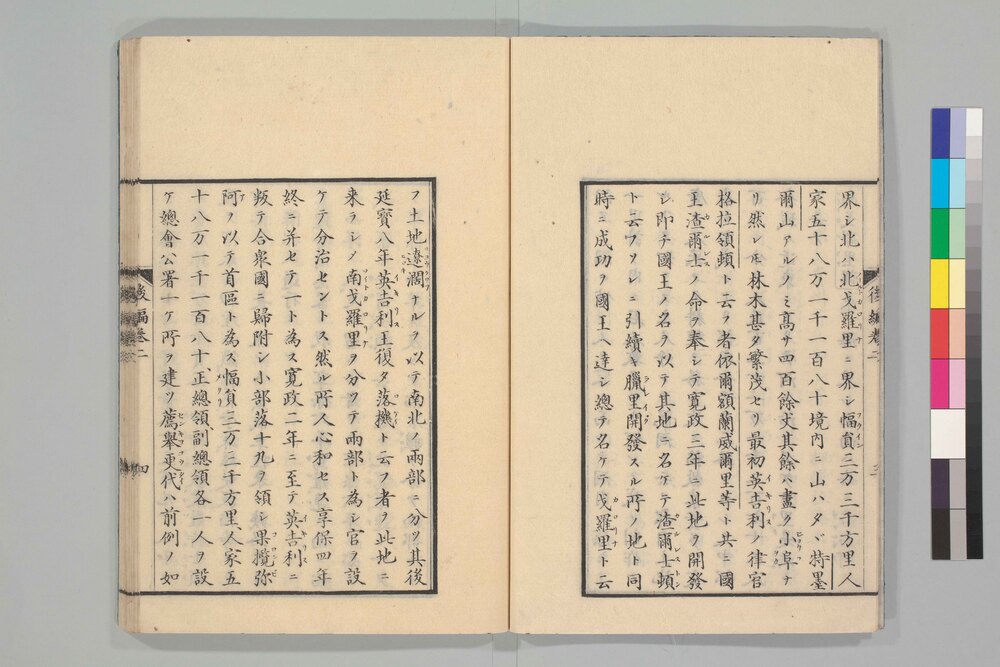 界シ北ハ北戈羅里ニ界シ幅員三万三千方里人
家五十八万一千一百八十境内ニ山ハタヾ莽墨
爾山アルノミ高サ四百餘丈其餘ハ盡ク小埠ナ
リ然レ𪜈林木甚タ繁茂セリ最初英吉利ノ律官
格拉領頓ト云フ者依爾額蘭威爾里等ト共ニ國
王渣爾士ノ命ヲ奉シテ寛政三年ニ此地ヲ開發
シ即チ國王ノ名ヲ以テ其地ニ名ケテ渣爾士頓
ト云フソレニ引續キ臘里開發スル所ノ地ト同
時ニ成功ヲ國王ヘ達シ總テ名ケテ戈羅里ト云
後編卷二
フ土地遼濶ナルヲ以テ南北ノ兩部ニ分ツ其後
延寶八年英吉利王復タ落機ト云フ者ヲ此地ニ
来ラシノ南戈羅里ヲ分ツテ兩部ト為シ官ヲ設
ケテ分治セントス然ル所人心和セス享保四年
終ニ并セテ一ト為ス寛政二年ニ至テ英吉利ニ
叛テ合衆國ニ歸附シ小部落十九ヲ領シ果攬弥
阿ノ以テ首區ト為ス幅員三万三千方里人家五
十八万一千一百八十正總領副總領各一人ヲ設
ケ總會公署一ケ所ヲ建ツ薦舉更代ハ前例ノ如
後編卷二
四